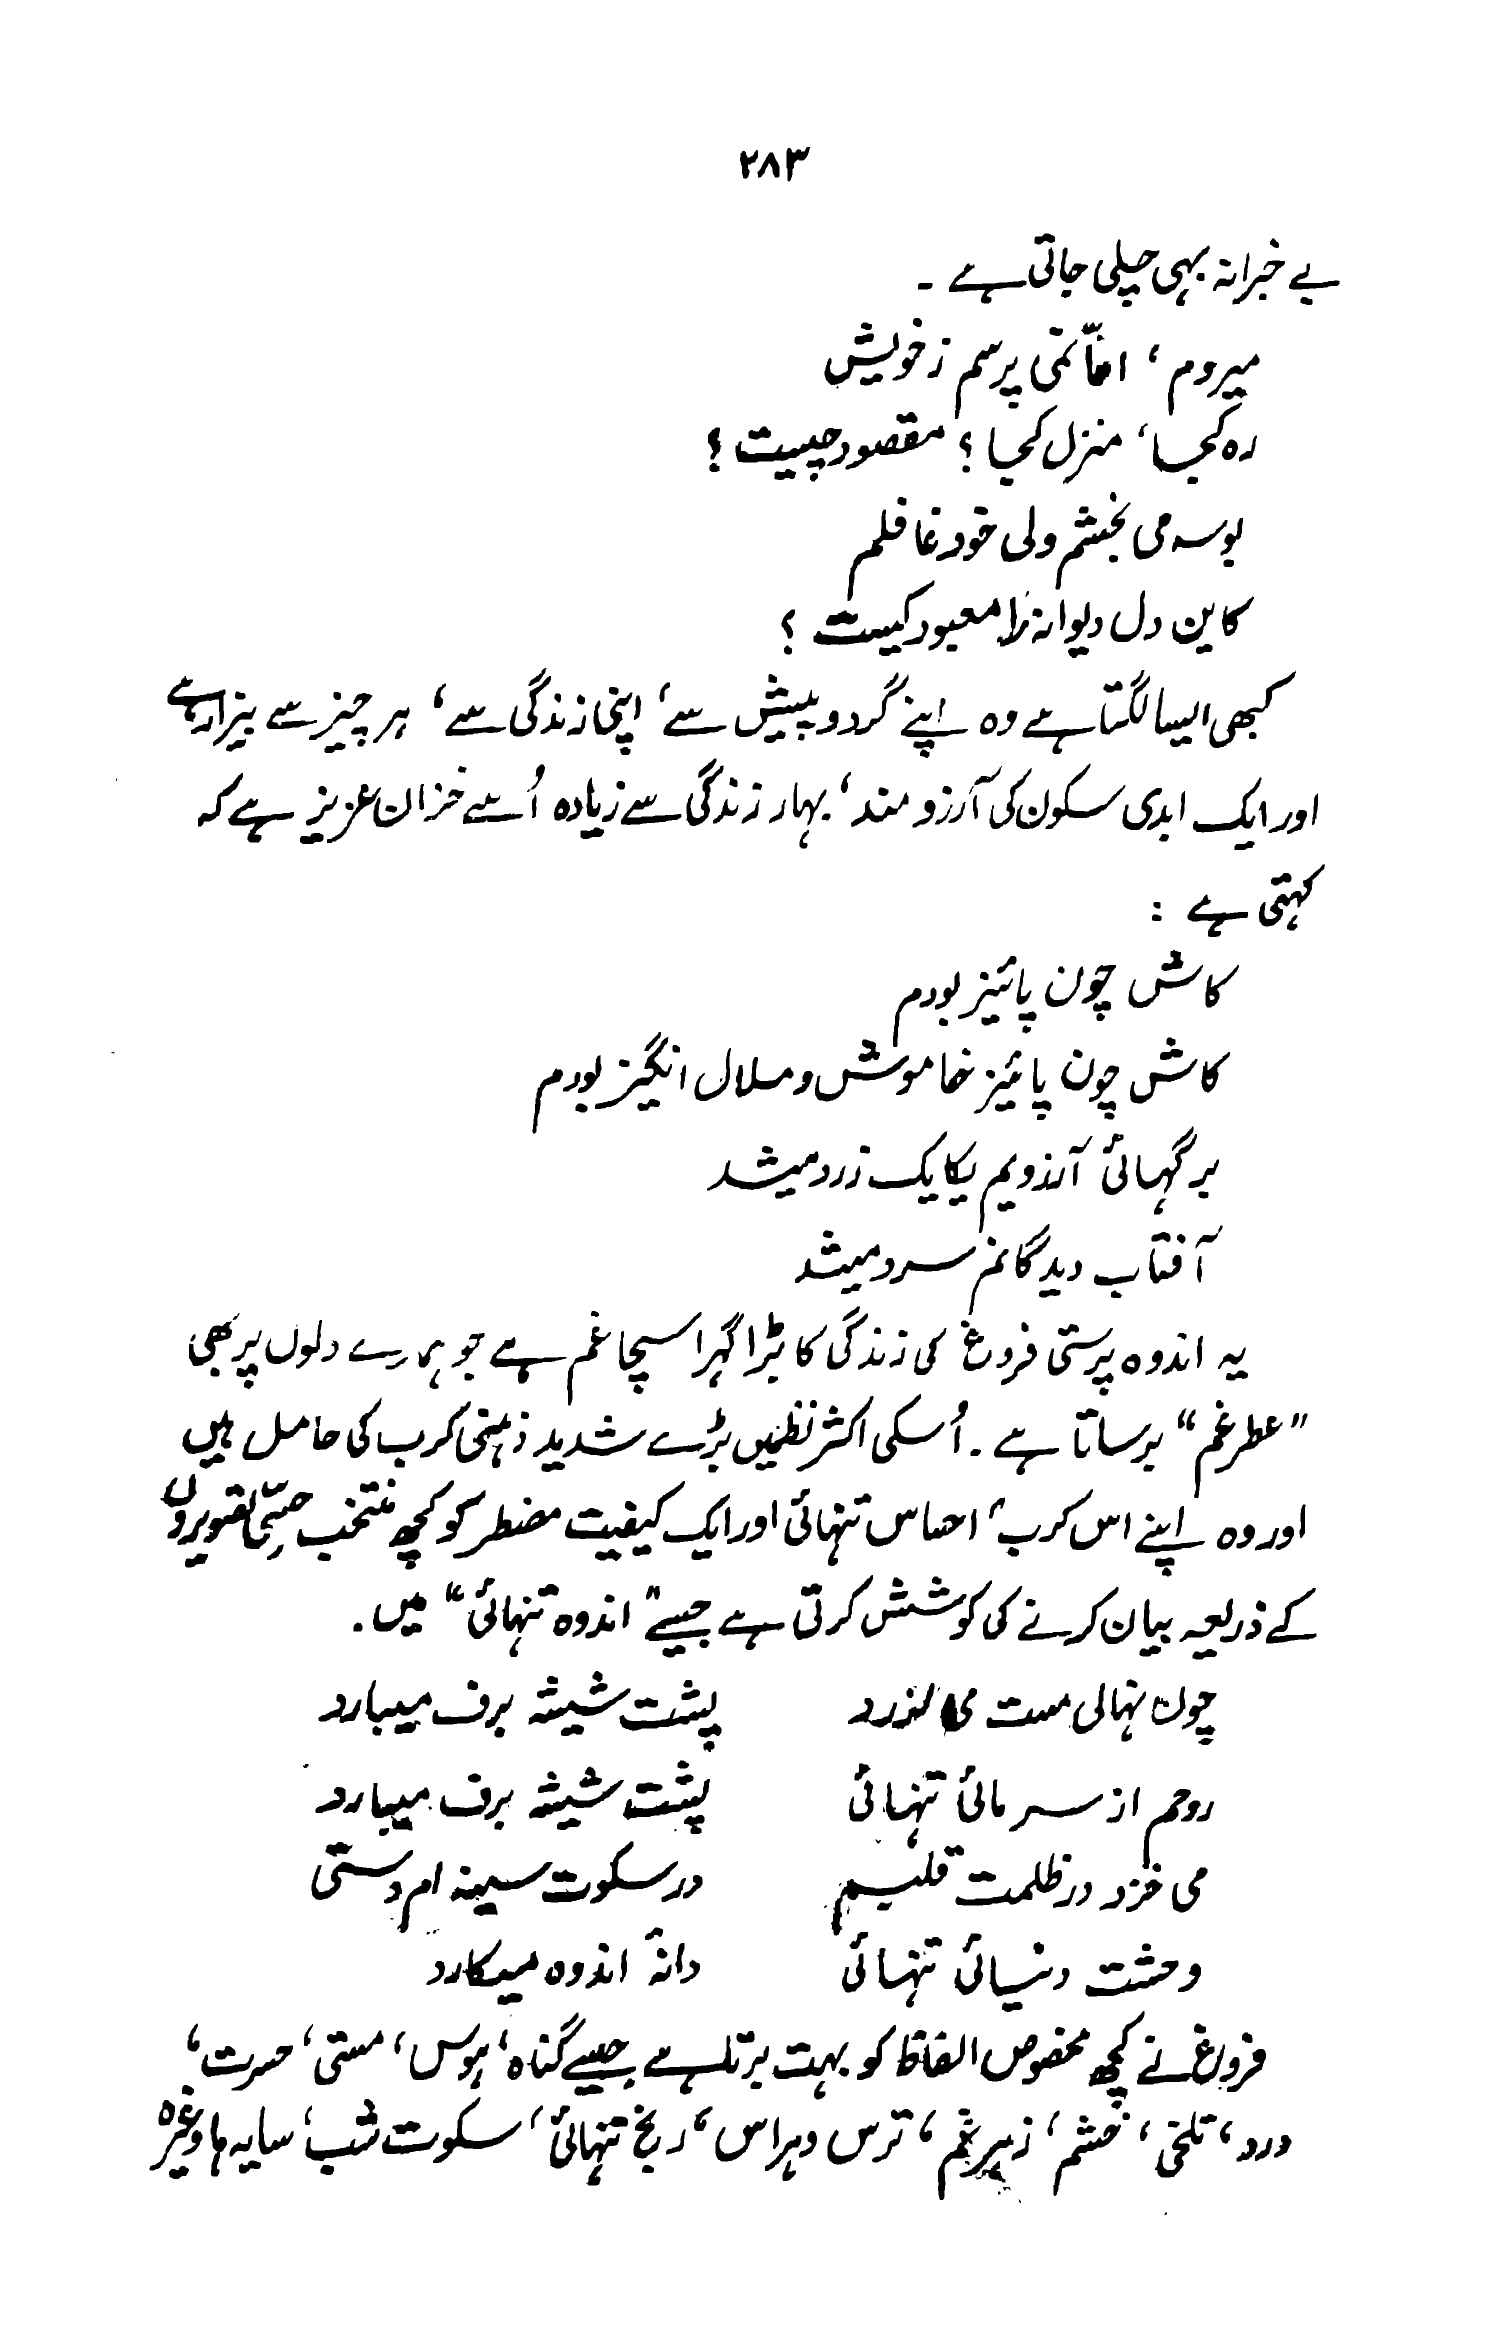 ۲۸۳
بے خبرانہ بہی چلی جاتی ہے ۔
میروم ، امّا نمی پرسم ز خویش
رہ کجا ، منزل کجا ؟ مقصود چیست ؟
بوسہ می بخشم ولی خود غافلم
کاین دل دیوانہ را معبود کیست ؟
کبھی ایسا لگتا ہے وہ اپنے گرد و پیش سے ، اپنی زندگی سے ، ہر چیز سے بیزار ہے
اور ایک ابدی سکون کی آرزو مند ، بہار زندگی سے زیادہ اُسے خزان عزیز ہے کہ
کہتی ہے :
کاش چون پائیز بودم
کاش چون پائیز خاموش و ملال انگیز بودم
برگہائی آرزویم یکایک زرد میشد
آفتاب دیدگانم سرد میشد
یہ اندوہ پرستی فروغ کی زندگی کا بڑا گہرا سچا غم ہے جو ہمارے دلوں پر بھی
"عطر غم" برساتا ہے ۔ اُسکی اکثر نظمیں بڑے شدید ذہنی کرب کی حامل ہیں
اور وہ اپنے اس کرب ، احساس تنہائی اور ایک کیفیت مضطر کو کچھ منتخب حِسّی تصویروں
کے ذریعہ بیان کرنے کی کوشش کرتی ہے جیسے "اندوہ تنہائی" میں ۔
چون نہالی سست می لرزد پشت شیشہ برف میبارد
روحم از سرمائی تنہائی پشت شیشہ برف میبارد
می خزد در ظلمت قلبم در سکوت سینہ ام دستی
وحشت دنیائی تنہائی دانۂ اندوہ میکارد
فروغ نے کچھ مخصوص الفاظ کو بہت برتا ہے جیسے گناہ ، ہوس ، مستی ، حسرت ،
درد ، تلخی ، خشم ، زہر غم ، ترس و ہراس ، رنج تنہائی ، سکوت شب ، سایہ ہا وغیرہ